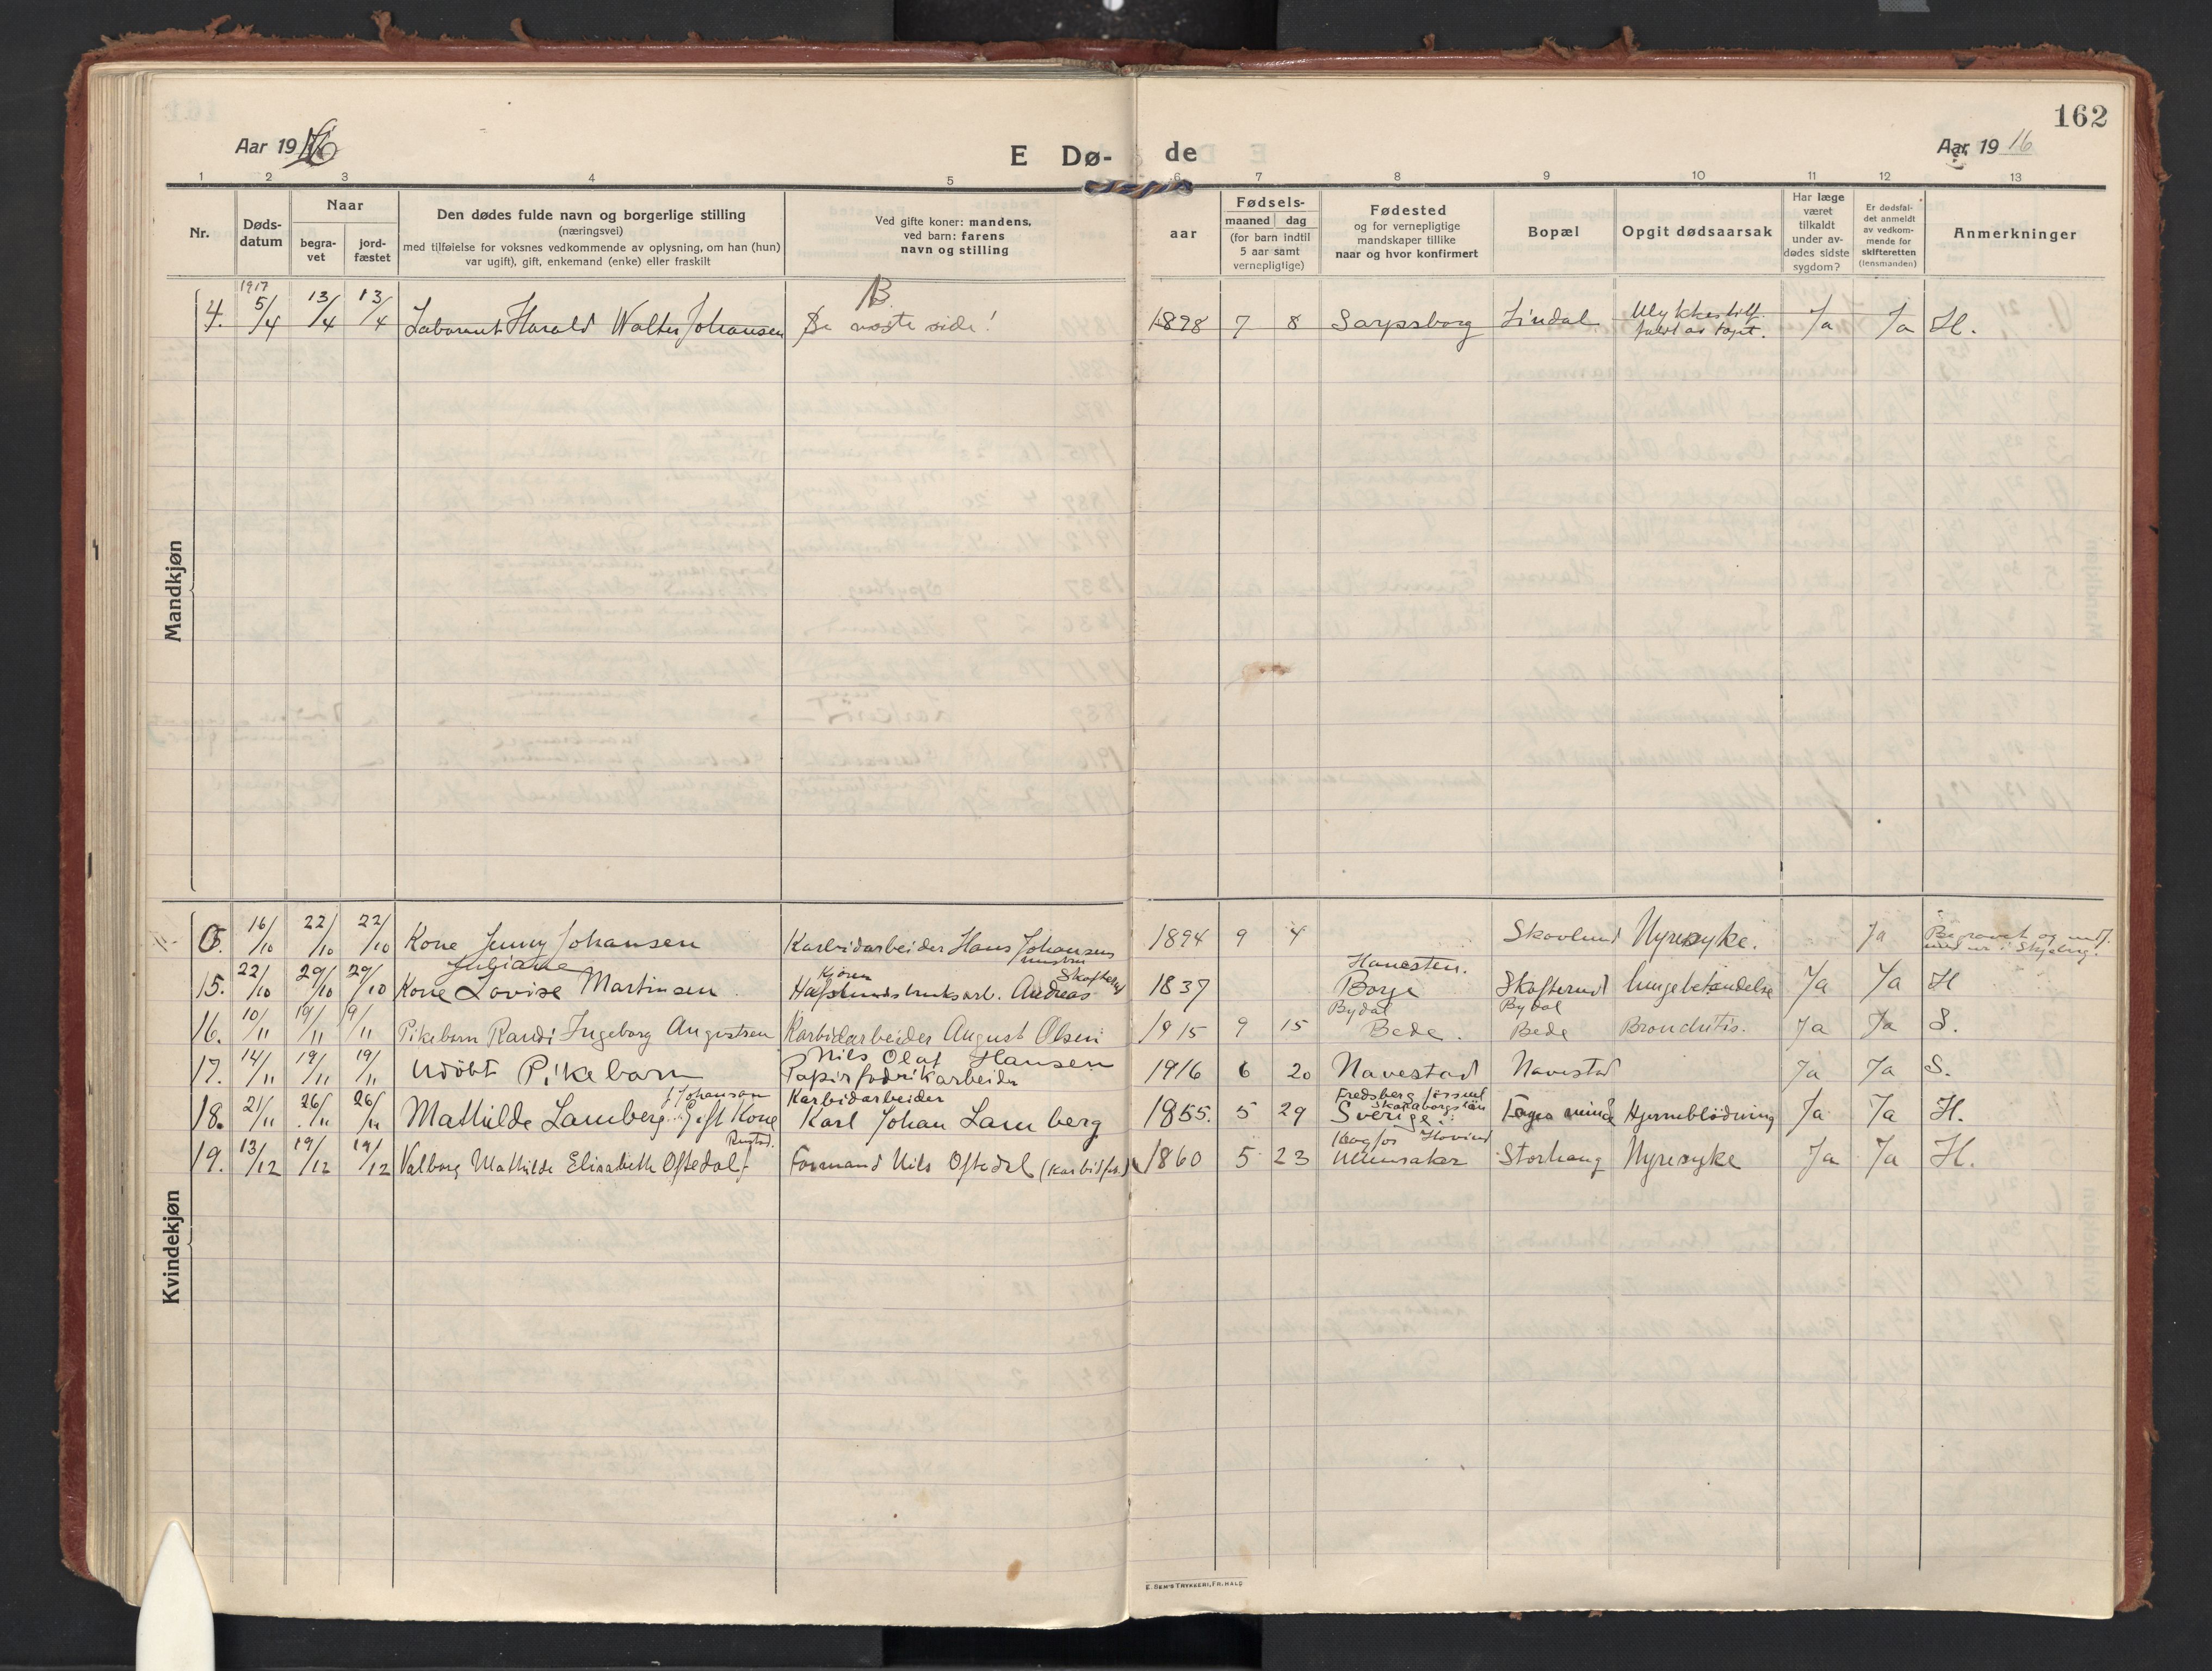 162
Aar 1916
E Dø-
de
Aar 19 16
1 2 3 4 5 6 7 8 9 10 11 12 13
Nr.
Døds-
datum
Naar
begra-
vet
jord-
fæstet
Den dødes fulde navn og borgerlige stilling
(næringsvei)
med tilføielse for voksnes vedkommende av oplysning, om han (hun)
var ugift), gift, enkemand (enke) eller fraskilt
Ved gifte koner: mandens,
ved barn: farens
navn og stilling
aar
Fødsels-
maaned dag
(for barn indtil
5 aar samt
vernepligtige)
Fødested
og for vernepligtige
mandskaper tillike
naar og hvor konfirmert
Bopæl
Opgit dødsaarsak
Har læge
været
tilkaldt
under av-
dødes sidste
sygdom?
Er dødsfal-
det anmeldt
av vedkom-
mende for
skifteretten
(lensmanden)
Anmerkninger
Mandkjøn
1917
4. 5/4 13/4 13/4 Laborant Harald Walter Johansen
B
Se næste side!
1898 7 8 Sarpsborg Lindal Ulykkestilf.
Ja Ja H.
Kvindekjøn
16/10 22/10 22/10 Kone Jenny Johansen Karbidarbeider Hans Johansens
1894 9 4 Skovlund Nyresyke. Ja Begravet og
i Skjeberg.
Juliane
15. 22/10 29/10 29/10 Kone Lovise Martinsen Hafslundsbruksarb. Andreas
1837 Hauesten. Borge Skofterud lungebetændelse Ja Ja H
16. 10/11 19/11 19/11 Pikebarn Randi Ingeborg Augustsen Karbidarbeider August Olsen
1915 9 15 Bydal Bede. Bydal Bede Bronchitis. Ja Ja S.
17. 14/11 19/11 19/11 Udöbt Pikebarn Nils Olaf Hansen
Papirfabrikarbeider
1916 6 20 Navestad Navestad Ja Ja S.
18. 21/11 26/11 26/11 Mathilde Lamberg f Johanson Gift Kone Karbidarbeider
Karl Johan Lamberg
1855. 5 29 Fredsberg
Skaraborgslän
Sverige. Fagerminde Hjerneblödning Ja Ja H.
19. 13/12 19/12 19/12 Valborg Mathilde Elisabeth Oftedal f Rustad. Formand Nils Oftedal (karbidfab.)
1860 5 23 Hovind
Ullinsaker Storhaug Nyresyke Ja Ja H.
E. SEM'S TRYKKERI, FR.HALD